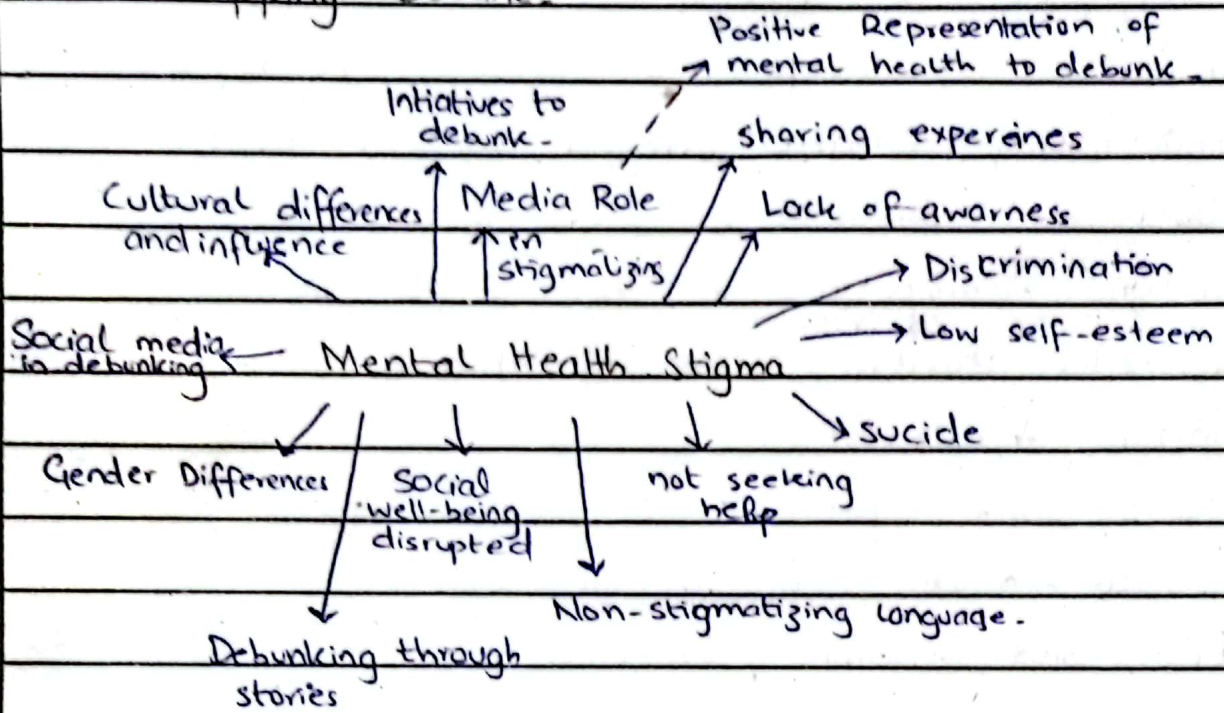 Positive Representation of
mental health to debunk.
Intiatives to
debunk.
sharing expereines
Cultural differences
and influence
Media Role
in
stigmatizing
Lack of awarness
Discrimination
Low self-esteem
Social media
in debunking
Mental Health Stigma
sucide
Gender Differences
Social
well-being
disrupted
not seeking
help
Non-stigmatizing language.
Debunking through
stories